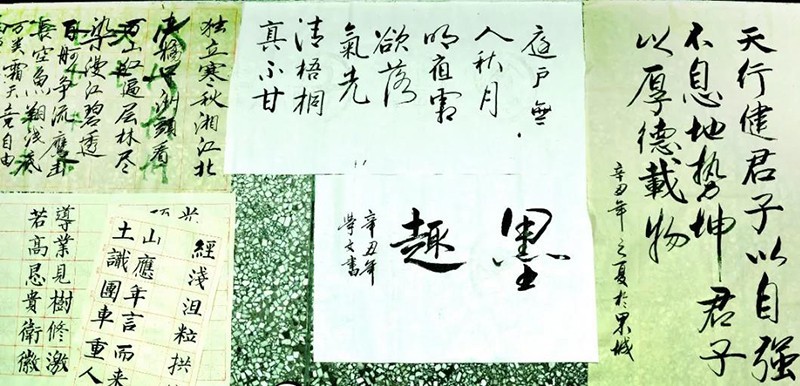 天行健君子以自强
不息地势坤君子
以厚德載物
辛丑年之夏於果城
庭戶無
人秋月
明夜霜
欲落
氣先
清梧桐
真不甘
墨
趣
辛丑年
學文書
独立寒秋湘江北
橘子洲頭看
万山红遍层林尽
染漫江碧透
百舸争流鹰击
長空魚翔浅底
万类霜天竞自由
經淺沮粒拱
山應年言而来
土識團車重人
導業見樹修激
若高恳貴衛徽